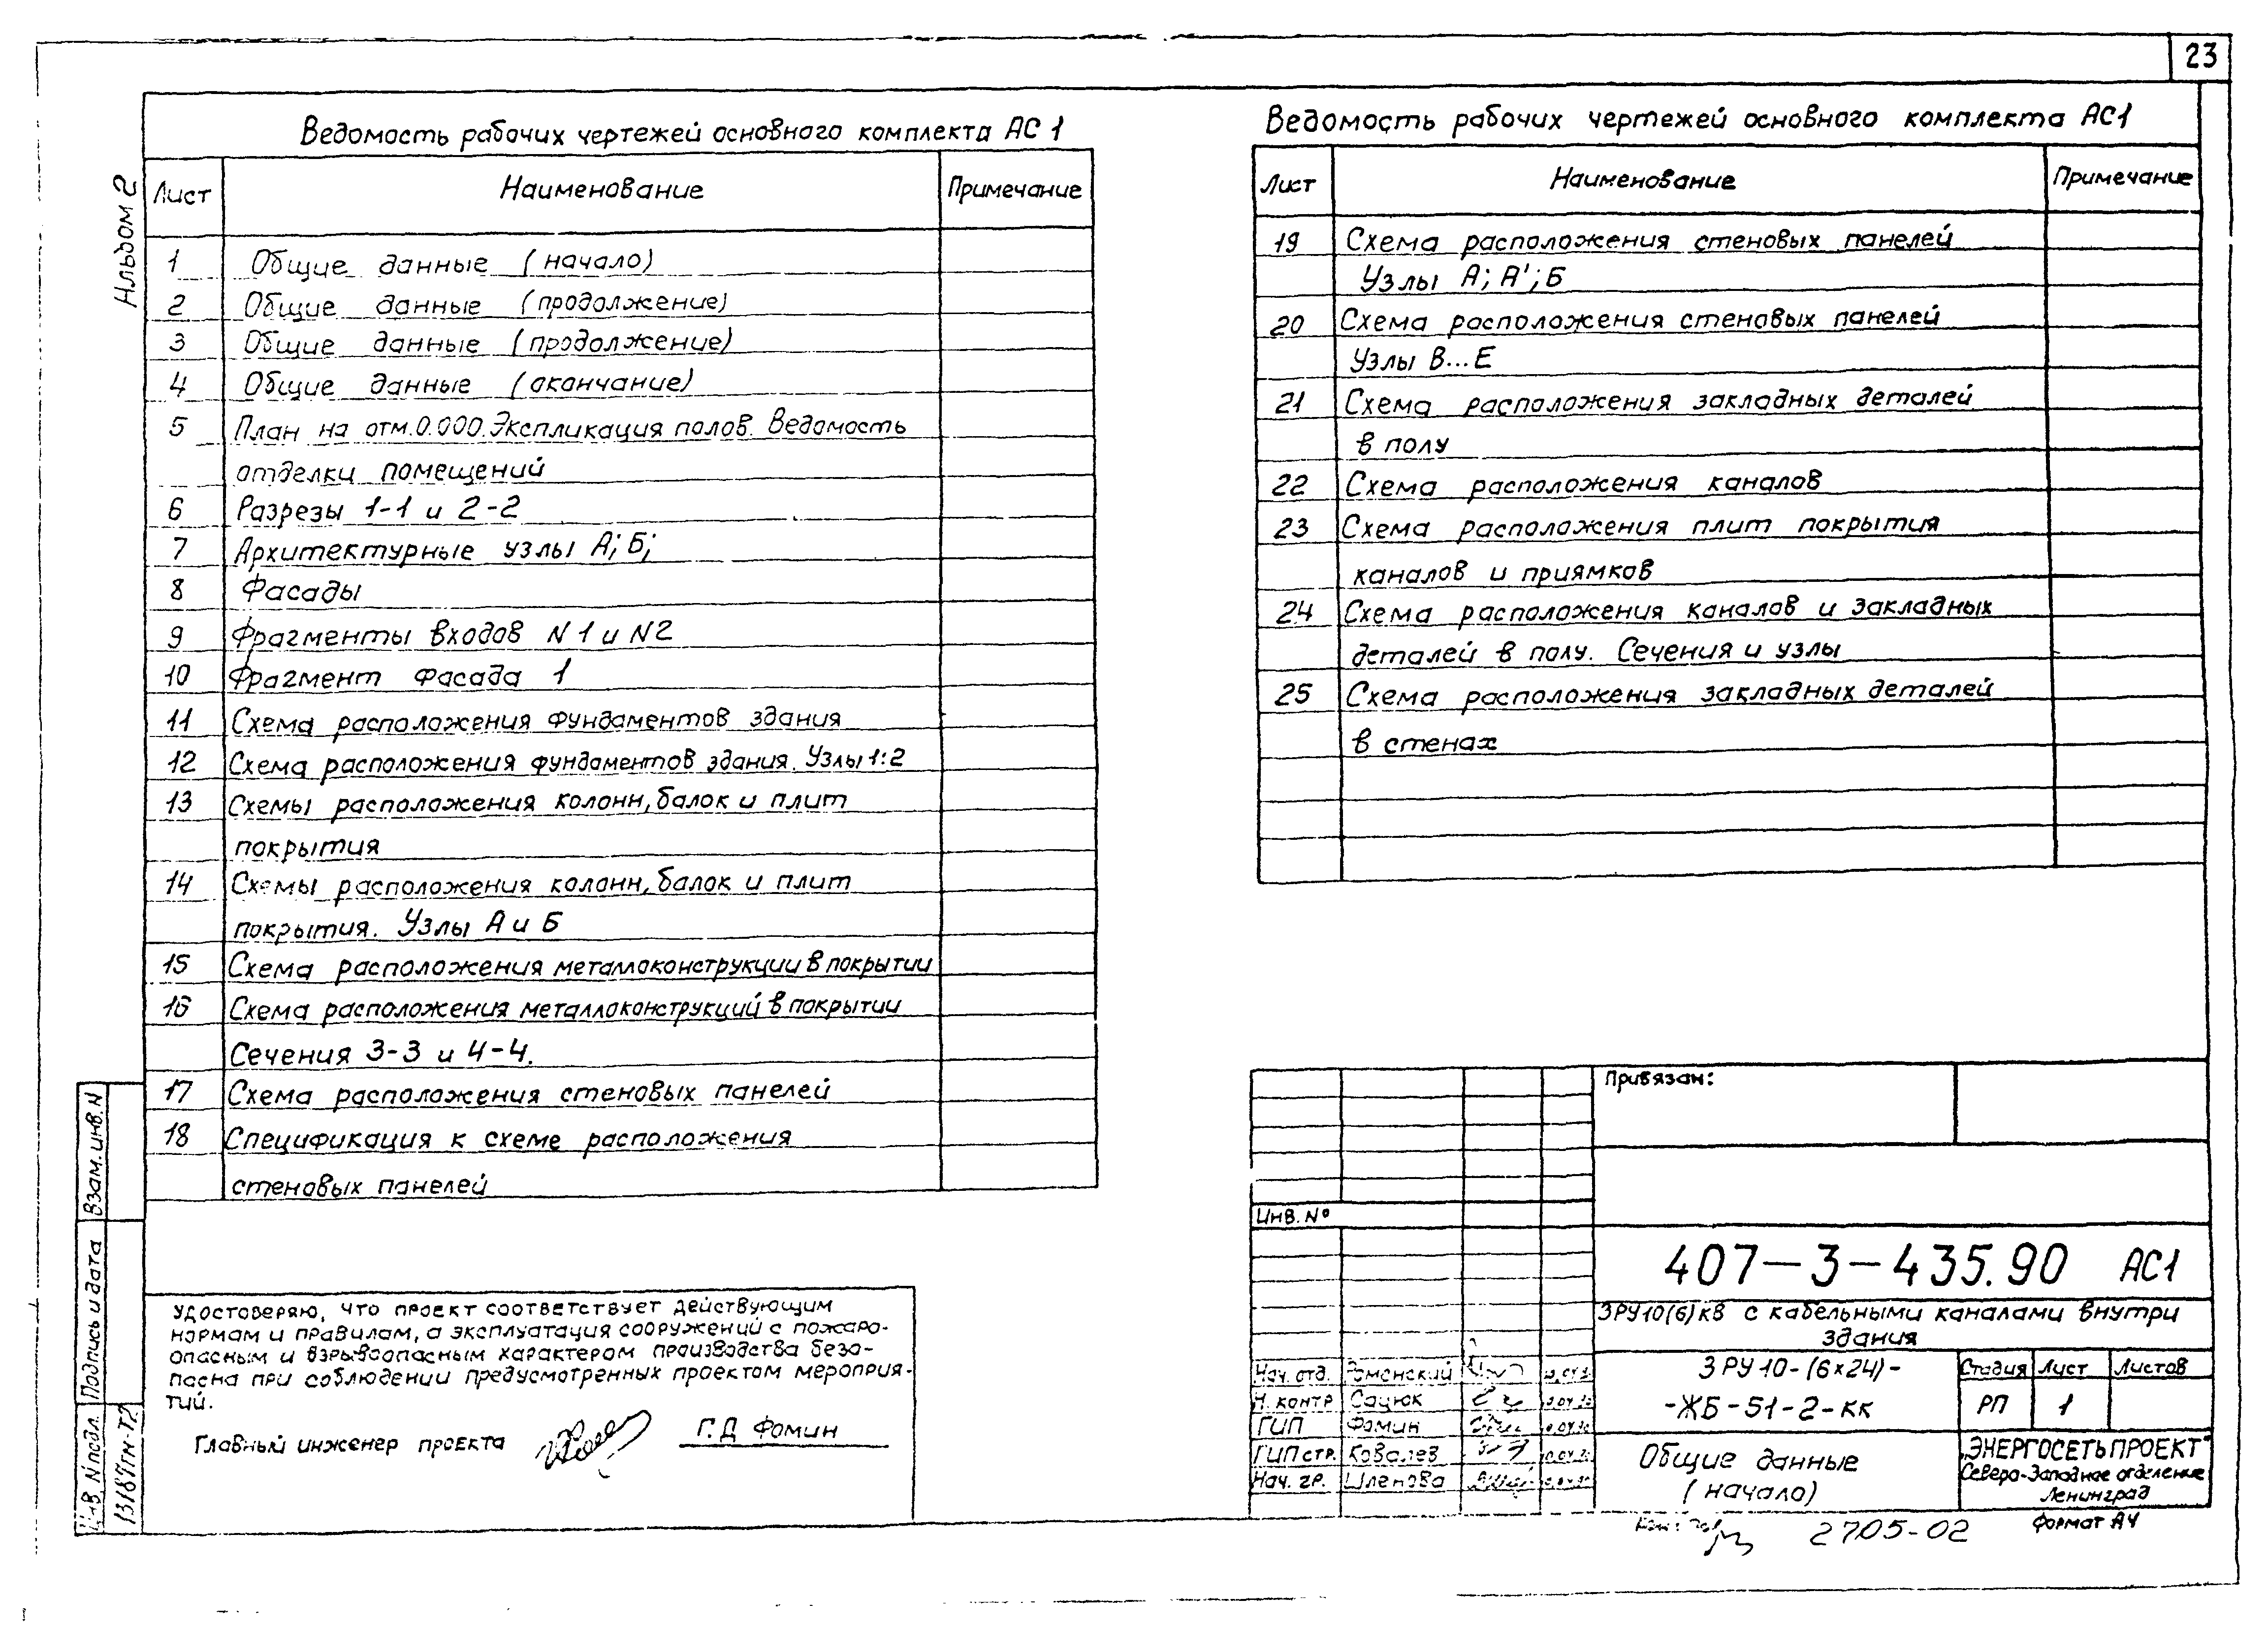 23
Альбом 2
Ведомость рабочих чертежей основного комплекта АС 1
Лист Наименование Примечание
1 Общие данные (начало)
2 Общие данные (продолжение)
3 Общие данные (продолжение)
4 Общие данные (окончание)
5 План на отм.0.000. Экспликация полов. Ведомость
отделки помещений
6 Разрезы 1-1 и 2-2
7 Архитектурные узлы А; Б;
8 Фасады
9 Фрагменты входов N1 и N2
10 Фрагмент фасада 1
11 Схема расположения фундаментов здания
12 Схема расположения фундаментов здания. Узлы 1:2
13 Схемы расположения колонн, балок и плит
покрытия
14 Схемы расположения колонн, балок и плит
покрытия. Узлы А и Б
15 Схема расположения металлоконструкции в покрытии
16 Схема расположения металлоконструкций в покрытии
Сечения 3-3 и 4-4.
17 Схема расположения стеновых панелей
18 Спецификация к схеме расположения
стеновых панелей
Ведомость рабочих чертежей основного комплекта АС1
Лист Наименование Примечание
19 Схема расположения стеновых панелей
Узлы А; А'; Б
20 Схема расположения стеновых панелей
Узлы В...Е
21 Схема расположения закладных деталей
в полу
22 Схема расположения каналов
23 Схема расположения плит покрытия
каналов и приямков
24 Схема расположения каналов и закладных
деталей в полу. Сечения и узлы
25 Схема расположения закладных деталей
в стенах
Удостоверяю, что проект соответствует действующим
нормам и правилам, а эксплуатация сооружений с пожаро-
опасным и взрывоопасным характером производства безо-
пасна при соблюдении предусмотренных проектом мероприя-
тий.
Главный инженер проекта Г.Д Фомин
Взам. инв. N
Подпись и дата
Инв. N подл.
13187тм-т2
Привязан:
Инв. №
407-3-435.90 АС1
ЗРУ10(6)кВ с кабельными каналами внутри
здания
Нач. отд. Роменский
Н. контр Сацюк
ГИП Фомин
ГИП стр. Ковалев
Нач. гр. Шленова
ЗРУ10-(6х24)-
-ЖБ-51-2-КК
Стадия Лист Листов
РП 1
Общие данные
(начало)
"ЭНЕРГОСЕТЬПРОЕКТ"
Северо-Западное отделение
Ленинград
2705-02
Формат А4